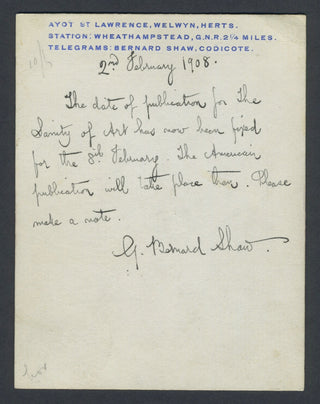 AYOT ST LAWRENCE, WELWYN, HERTS.
STATION: WHEATHAMPSTEAD, G.N.R. 2¼ MILES.
TELEGRAMS: BERNARD SHAW, CODICOTE.
2nd February 1908.
The date of publication for The
Sanity of Art has now been fixed
for the 8th February. The American
publication will take place then. Please
make a note.
G. Bernard Shaw.